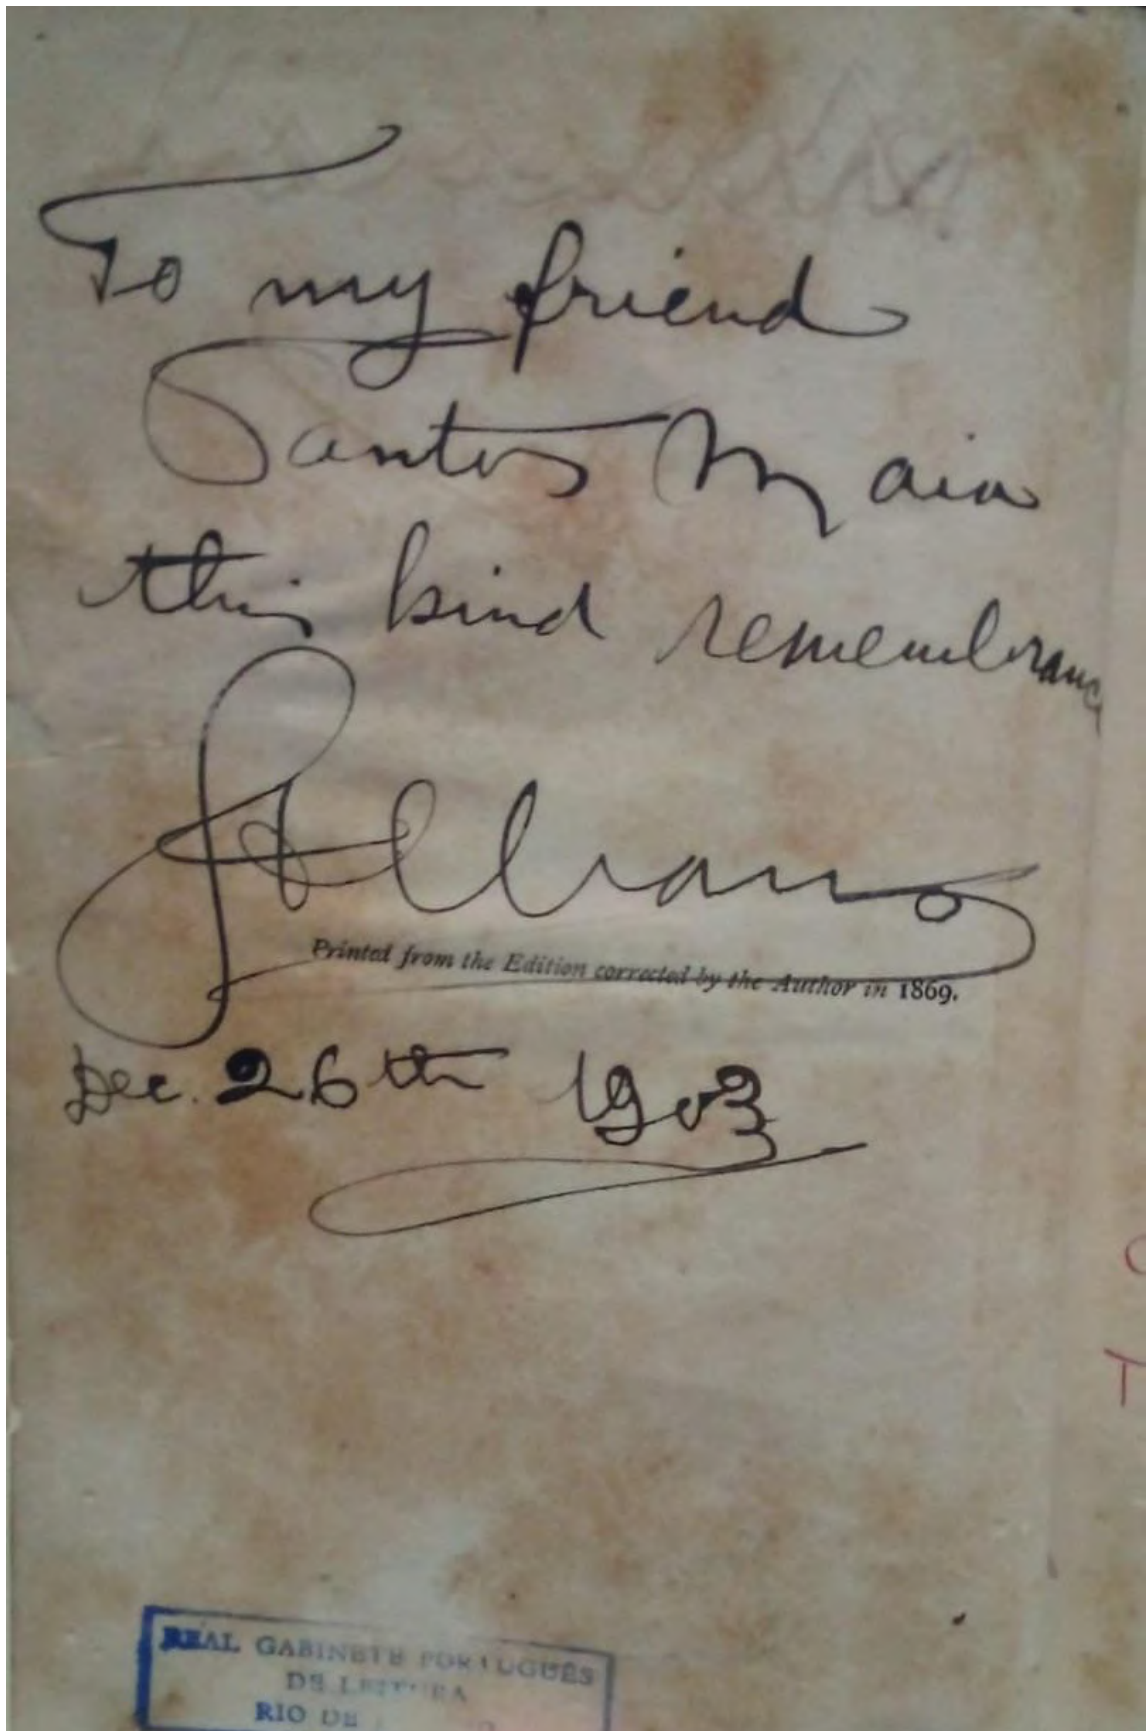 To my friend
Santos Maia
this kind remembrance
Printed from the Edition corrected by the Author in 1869.
Dec. 26th 1903
REAL GABINETE PORTUGUÊS
DE LEITURA
RIO DE